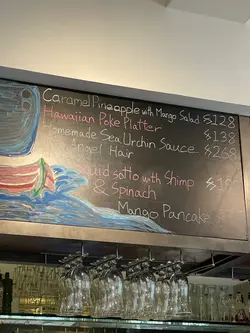 Caramel Pineapple with Mango Salad $128
Hawaiian Poke Platter $138
Homemade Sea Urchin Sauce $268
Angel Hair
sotto with Shimp
& Spinach
Mango Pancake